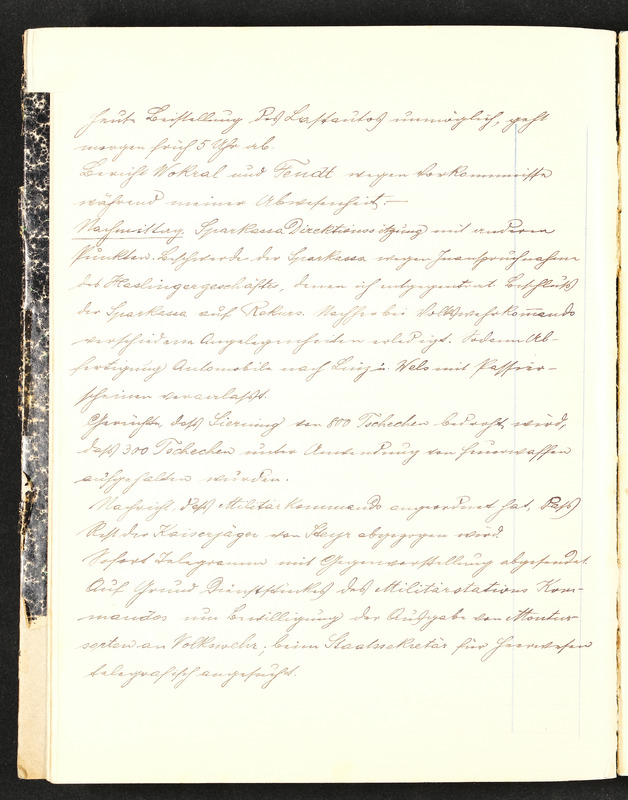 heute Beistellung des Lastautos unmöglich, geht
morgen früh 5 Uhr ab.
Bericht Wokral und Tendt wegen Vorkommnisse
während meiner Abwesenheit.—
Nachmittag. Sparkassa Direktionssitzung mit anderen
Punkten. Beschwerde der Sparkassa wegen Inanspruchnahme
des Haslingergeschäftes, denen ich entgegentrat Beschluß
der Sparkassa auf Rekurs. Nachher bei Volkswehrkom̄ando
verschiedene Angelegenheiten erledigt. Sodann Ab-
fertigung Automobile nach Linz u. Wels mit Passier-
scheinen veranlaßt.
Gerüchte, daß Sierning von 800 Tschechen bedroht wird,
daß 300 Tschechen unter Anwendung von Feuerwaffen
aufgehalten wurden.
Nachricht, daß Militärkommando angeordnet hat, daß
Rest der Kaiserjäger von Steyr abgezogen wird.
Sofort Telegramm mit Gegenvorstellung abgesendet.
Auf Grund Dienststückes des Militärstations Kom-
mandos um Bewilligung der Ausgabe von Montur-
sorten an Volkswehr, beim Staatssekretär für Heerwesen
telegrafisch angesucht.